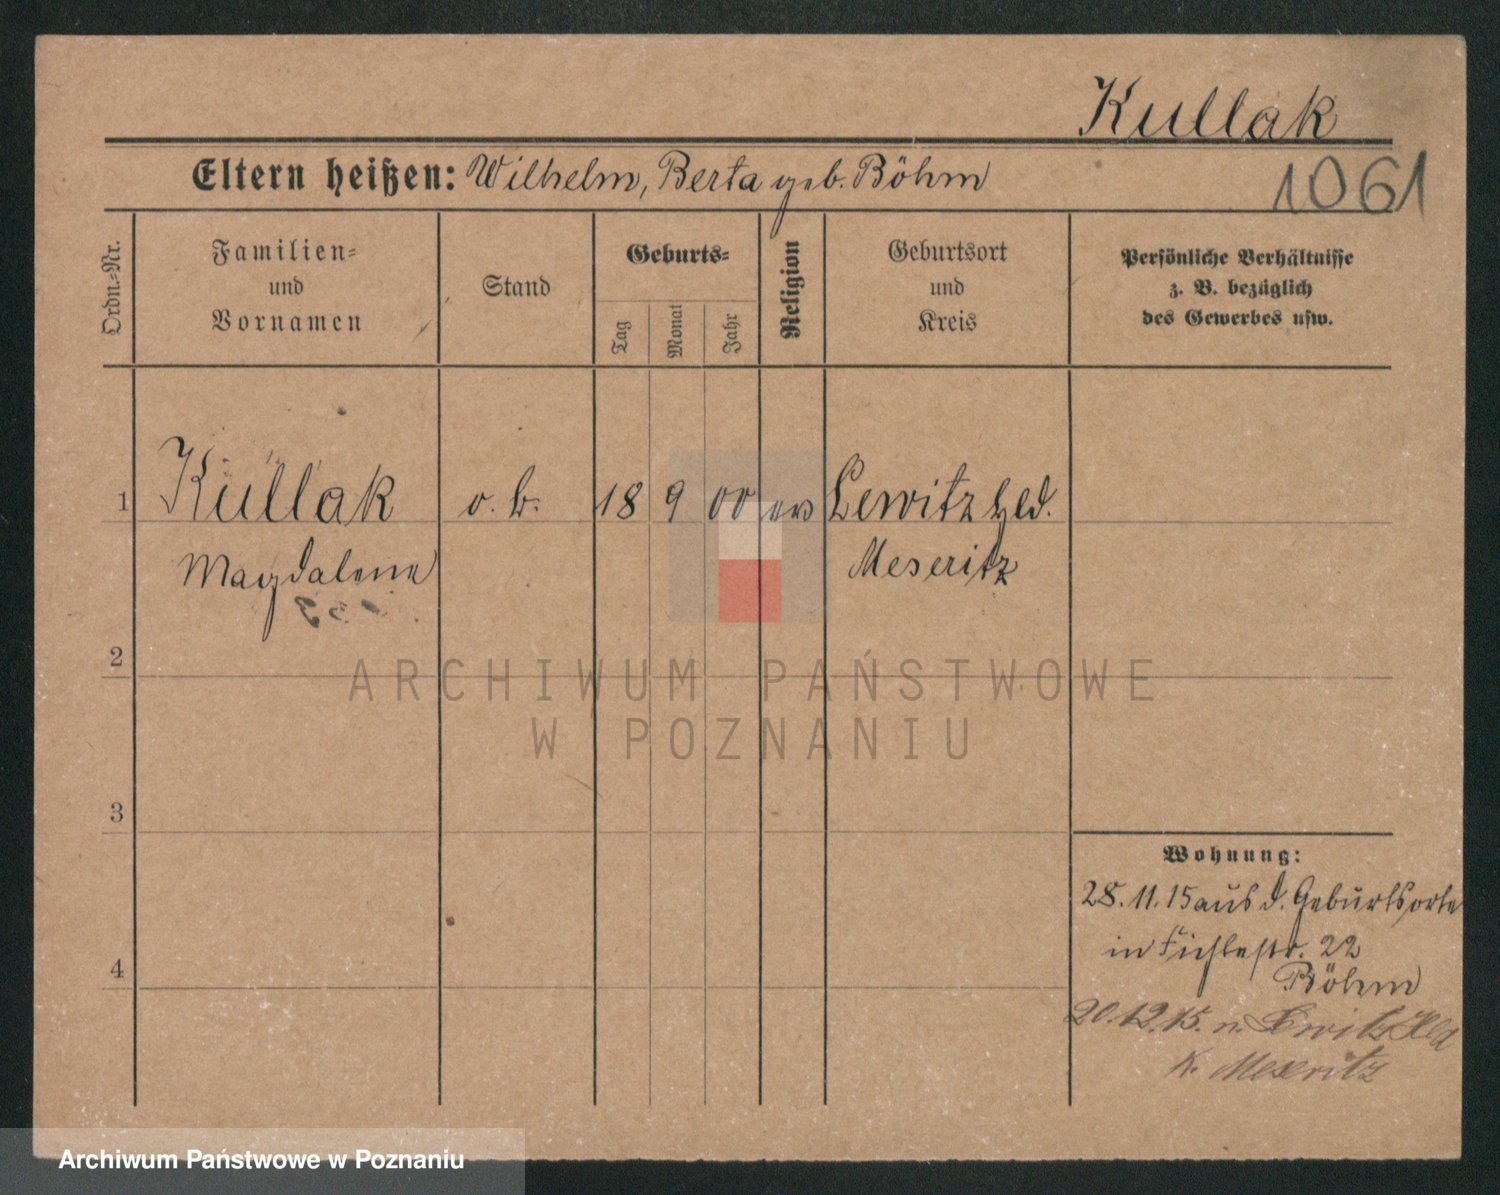 Kullak
Eltern heißen: Wilhelm, Berta geb. Böhm
1061
Ordn.-Nr.
Familien-
und
Vornamen
Stand
Geburts-
Tag
Monat
Jahr
Religion
Geburtsort
und
Kreis
Persönliche Verhältnisse
z. B. bezüglich
des Gewerbes usw.
1 Kullak o. b. 18 9 00 ev Lewitz Hld.
Magdalena
Meseritz
2
3
4
Wohnung:
28. 11. 15 aus d. Geburtsorte
in Fichtestr. 22
Böhm
20.12.15. n. Lewitz Hld
K. Meseritz
ARCHIWUM PAŃSTWOWE
W POZNANIU
Archiwum Państwowe w Poznaniu